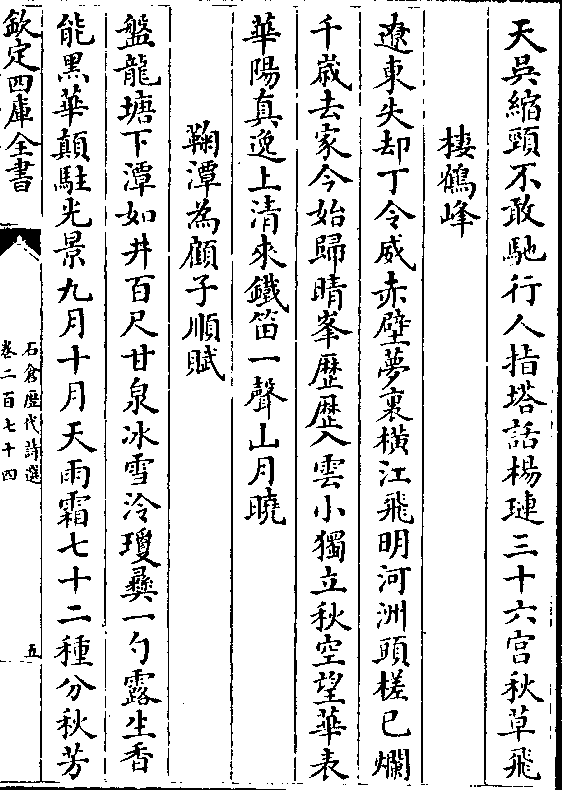 天吳縮頸不敢馳行人指塔話楊璉三十六宫秋草飛
棲鶴峰
遼東失却丁令威赤壁夢裏橫江飛明河洲頭槎已爛
千歳去家今始歸晴峯歴歴入雲小獨立秋空望華表
華陽真逸上清來鐵笛一聲山月曉
鞠潭為顧子順賦
盤龍塘下潭如井百尺甘泉冰雪泠瓊彛一勺露生香
能黑華顛駐光景九月十月天雨霜七十二種分秋芳
欽定四庫全書
石倉歴代詩選
卷二百七十四
五